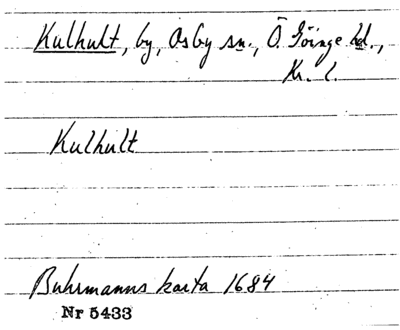 Kulhult, by, Osby sn., Ö. Göinge hd.,
Kr. l.
Kulhult
Buhrmanns karta 1684
Nr 5433